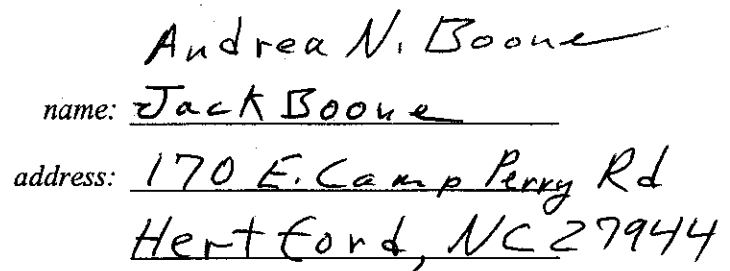 Andrea N. Boone
name: Jack Boone
address: 170 E. Camp Perry Rd
Hertford, NC 27944